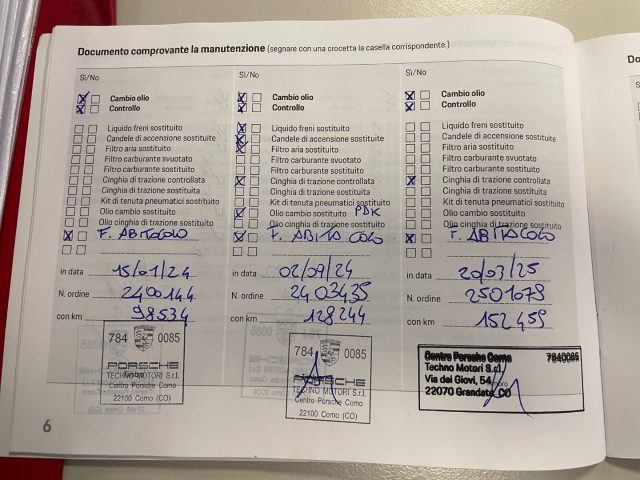 Documento comprovante la manutenzione (segnare con una crocetta la casella corrispondente.)
Sì/No
Cambio olio
Controllo
Liquido freni sostituito
Candele di accensione sostituite
Filtro aria sostituito
Filtro carburante svuotato
Filtro carburante sostituito
Cinghia di trazione controllata
Cinghia di trazione sostituita
Kit di tenuta pneumatici sostituito
Olio cambio sostituito
Olio cinghia di trazione sostituito
F. ABITACOLO
in data 15/01/24
N. ordine 2400144
con km 98534
784 0085
PORSCHE
TECHNO MOTORI S.r.l.
Centro Porsche Como
22100 Como (CO)
Sì/No
Cambio olio
Controllo
Liquido freni sostituito
Candele di accensione sostituite
Filtro aria sostituito
Filtro carburante svuotato
Filtro carburante sostituito
Cinghia di trazione controllata
Cinghia di trazione sostituita
Kit di tenuta pneumatici sostituito
Olio cambio sostituito PDK
Olio cinghia di trazione sostituito
F. ABITACOLO
in data 02/09/24
N. ordine 2403435
con km 128244
784 0085
PORSCHE
TECHNO MOTORI S.r.l.
Centro Porsche Como
22100 Como (CO)
Sì/No
Cambio olio
Controllo
Liquido freni sostituito
Candele di accensione sostituite
Filtro aria sostituito
Filtro carburante svuotato
Filtro carburante sostituito
Cinghia di trazione controllata
Cinghia di trazione sostituita
Kit di tenuta pneumatici sostituito
Olio cambio sostituito
Olio cinghia di trazione sostituito
F. ABITACOLO
in data 20/03/25
N. ordine 2501078
con km 152459
Centro Porsche Como 7840085
Techno Motori S.r.l.
Via dei Giovi, 54
22070 Grandate CO
6
Do